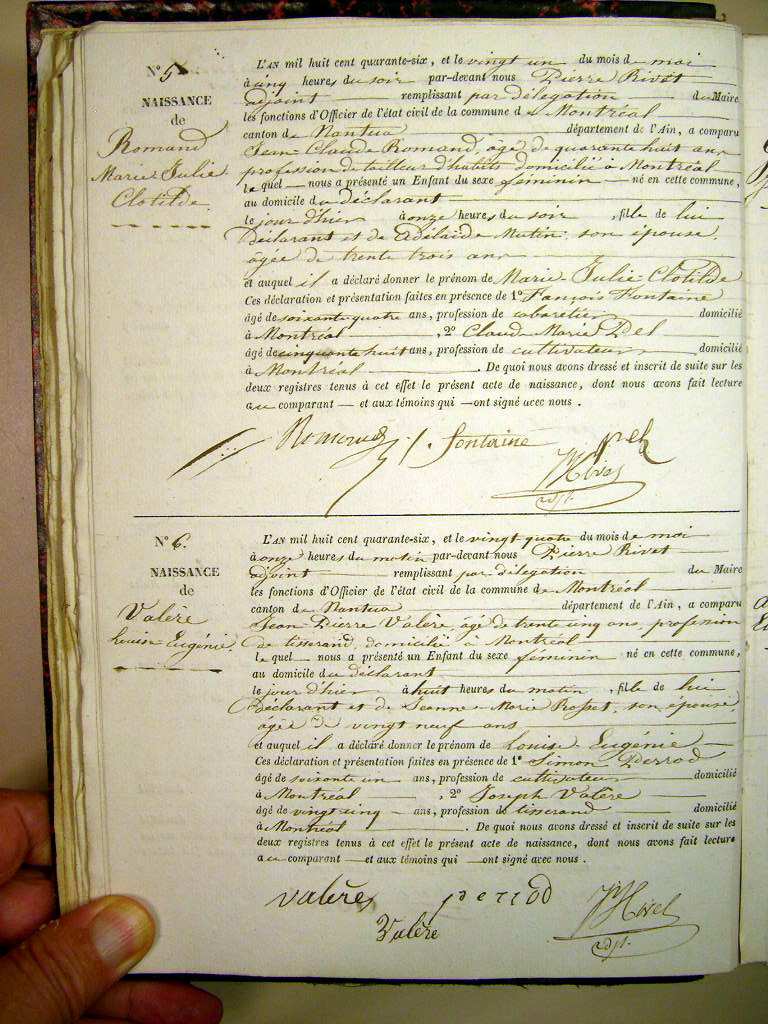 N° 5
NAISSANCE
de
Romand
Marie Julie
Clotilde
L'AN mil huit cent quarante-six, et le vingt un du mois de mai
à cinq heures du soir par-devant nous Pierre Rivet
adjoint remplissant par délégation du Maire
les fonctions d'Officier de l'état civil de la commune de Montréal
canton de Nantua département de l'Ain, a comparu
Jean-Claude Romand, âgé de quarante huit ans
profession de tailleur d'habits domicilié à Montréal
le quel nous a présenté un Enfant du sexe féminin né en cette commune,
au domicile du déclarant
le jour d'hier à onze heures du soir, fille de lui
Déclarant et de Adélaïde Mutin, son épouse,
âgée de trente trois ans
et auquel il a déclaré donner le prénom de Marie Julie Clotilde
Ces déclaration et présentation faites en présence de 1° François Fontaine
âgé de soixante quatre ans, profession de cabaretier domicilié
à Montréal, 2° Claude Marie Pel
âgé de cinquante huit ans, profession de cultivateur domicilié
à Montréal. De quoi nous avons dressé et inscrit de suite sur les
deux registres tenus à cet effet le présent acte de naissance, dont nous avons fait lecture
au comparant et aux témoins qui ont signé avec nous.
Romand f. fontaine pel
Rivet
adjt.
N° 6.
NAISSANCE
de
Valère
Louise-Eugénie.
L'AN mil huit cent quarante-six, et le vingt quatre du mois de mai
à onze heures du matin par-devant nous Pierre Rivet
adjoint remplissant par délégation du Maire
les fonctions d'Officier de l'état civil de la commune de Montréal
canton de Nantua département de l'Ain, a comparu
Jean-Pierre Valère, âgé de trente cinq ans, profession
de tisserand, domicilié à Montréal
le quel nous a présenté un Enfant du sexe féminin né en cette commune,
au domicile du déclarant
le jour d'hier à huit heures du matin, fille de lui
Déclarant et de Jeanne-Marie Rosset, son épouse
âgée de vingt neuf ans
et auquel il a déclaré donner le prénom de Louise-Eugénie
Ces déclaration et présentation faites en présence de 1° Simon Perrod
âgé de soixante un ans, profession de cultivateur domicilié
à Montréal, 2° Joseph Valère
âgé de vingt cinq ans, profession de tisserand domicilié
à Montréal. De quoi nous avons dressé et inscrit de suite sur les
deux registres tenus à cet effet le présent acte de naissance, dont nous avons fait lecture
au comparant et aux témoins qui ont signé avec nous.
valère perrod Rivet
Valère adjt.